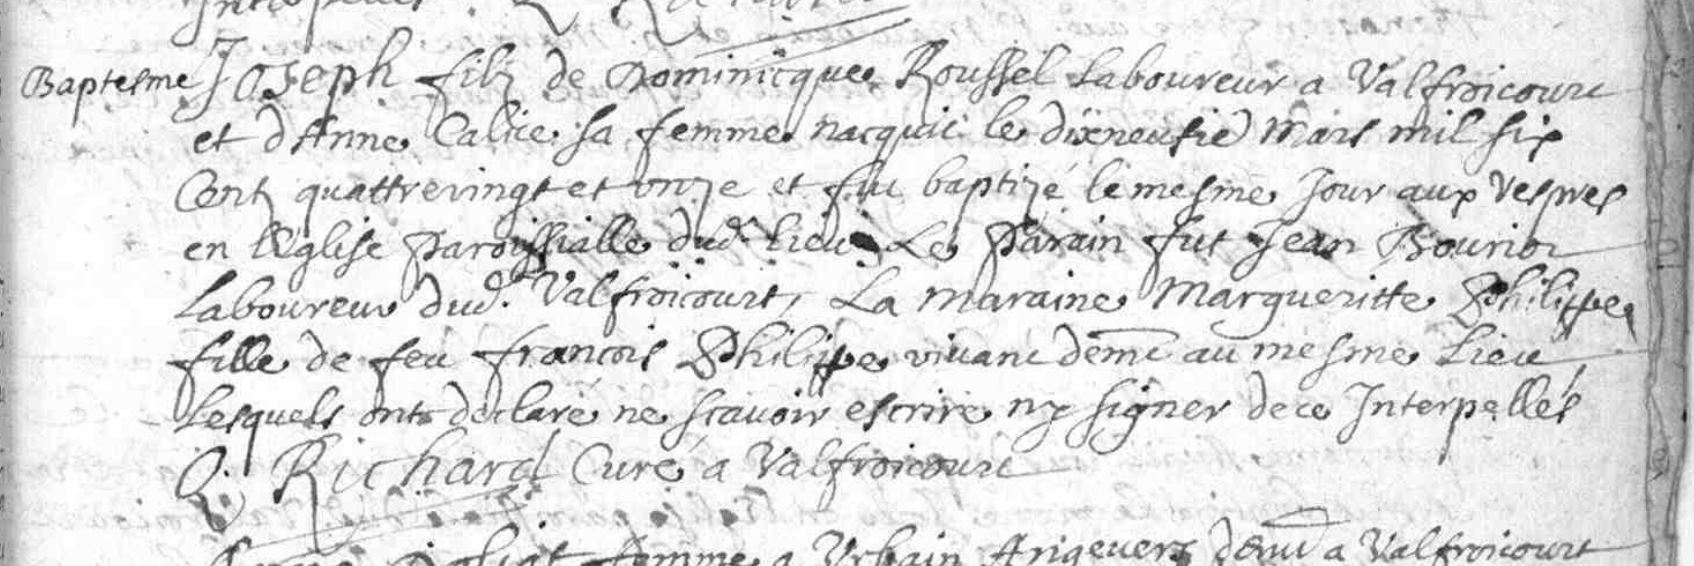 Baptesme Joseph filz de Dominicque Roussel Laboureur a Valfroicourt
et dAnne Calice sa femme nacquit le dixneufie Mars mil six
Centz quattrevingt et onze et fut baptizé le mesme Jour aux Vespres
en lEglise Paroissialle dud. Lieu Le Parain fut Jean Bourion
Laboureur dud. Valfroicourt, La maraine Margueritte Philippe
fille de feu francois Philippe vivant demt au mesme Lieu,
Lesquels ont declaré ne scavoir escrire ny signer de ce Interpellés
Q. Richard Curé a Valfroicourt
femme a Urbain demt a Valfroicourt